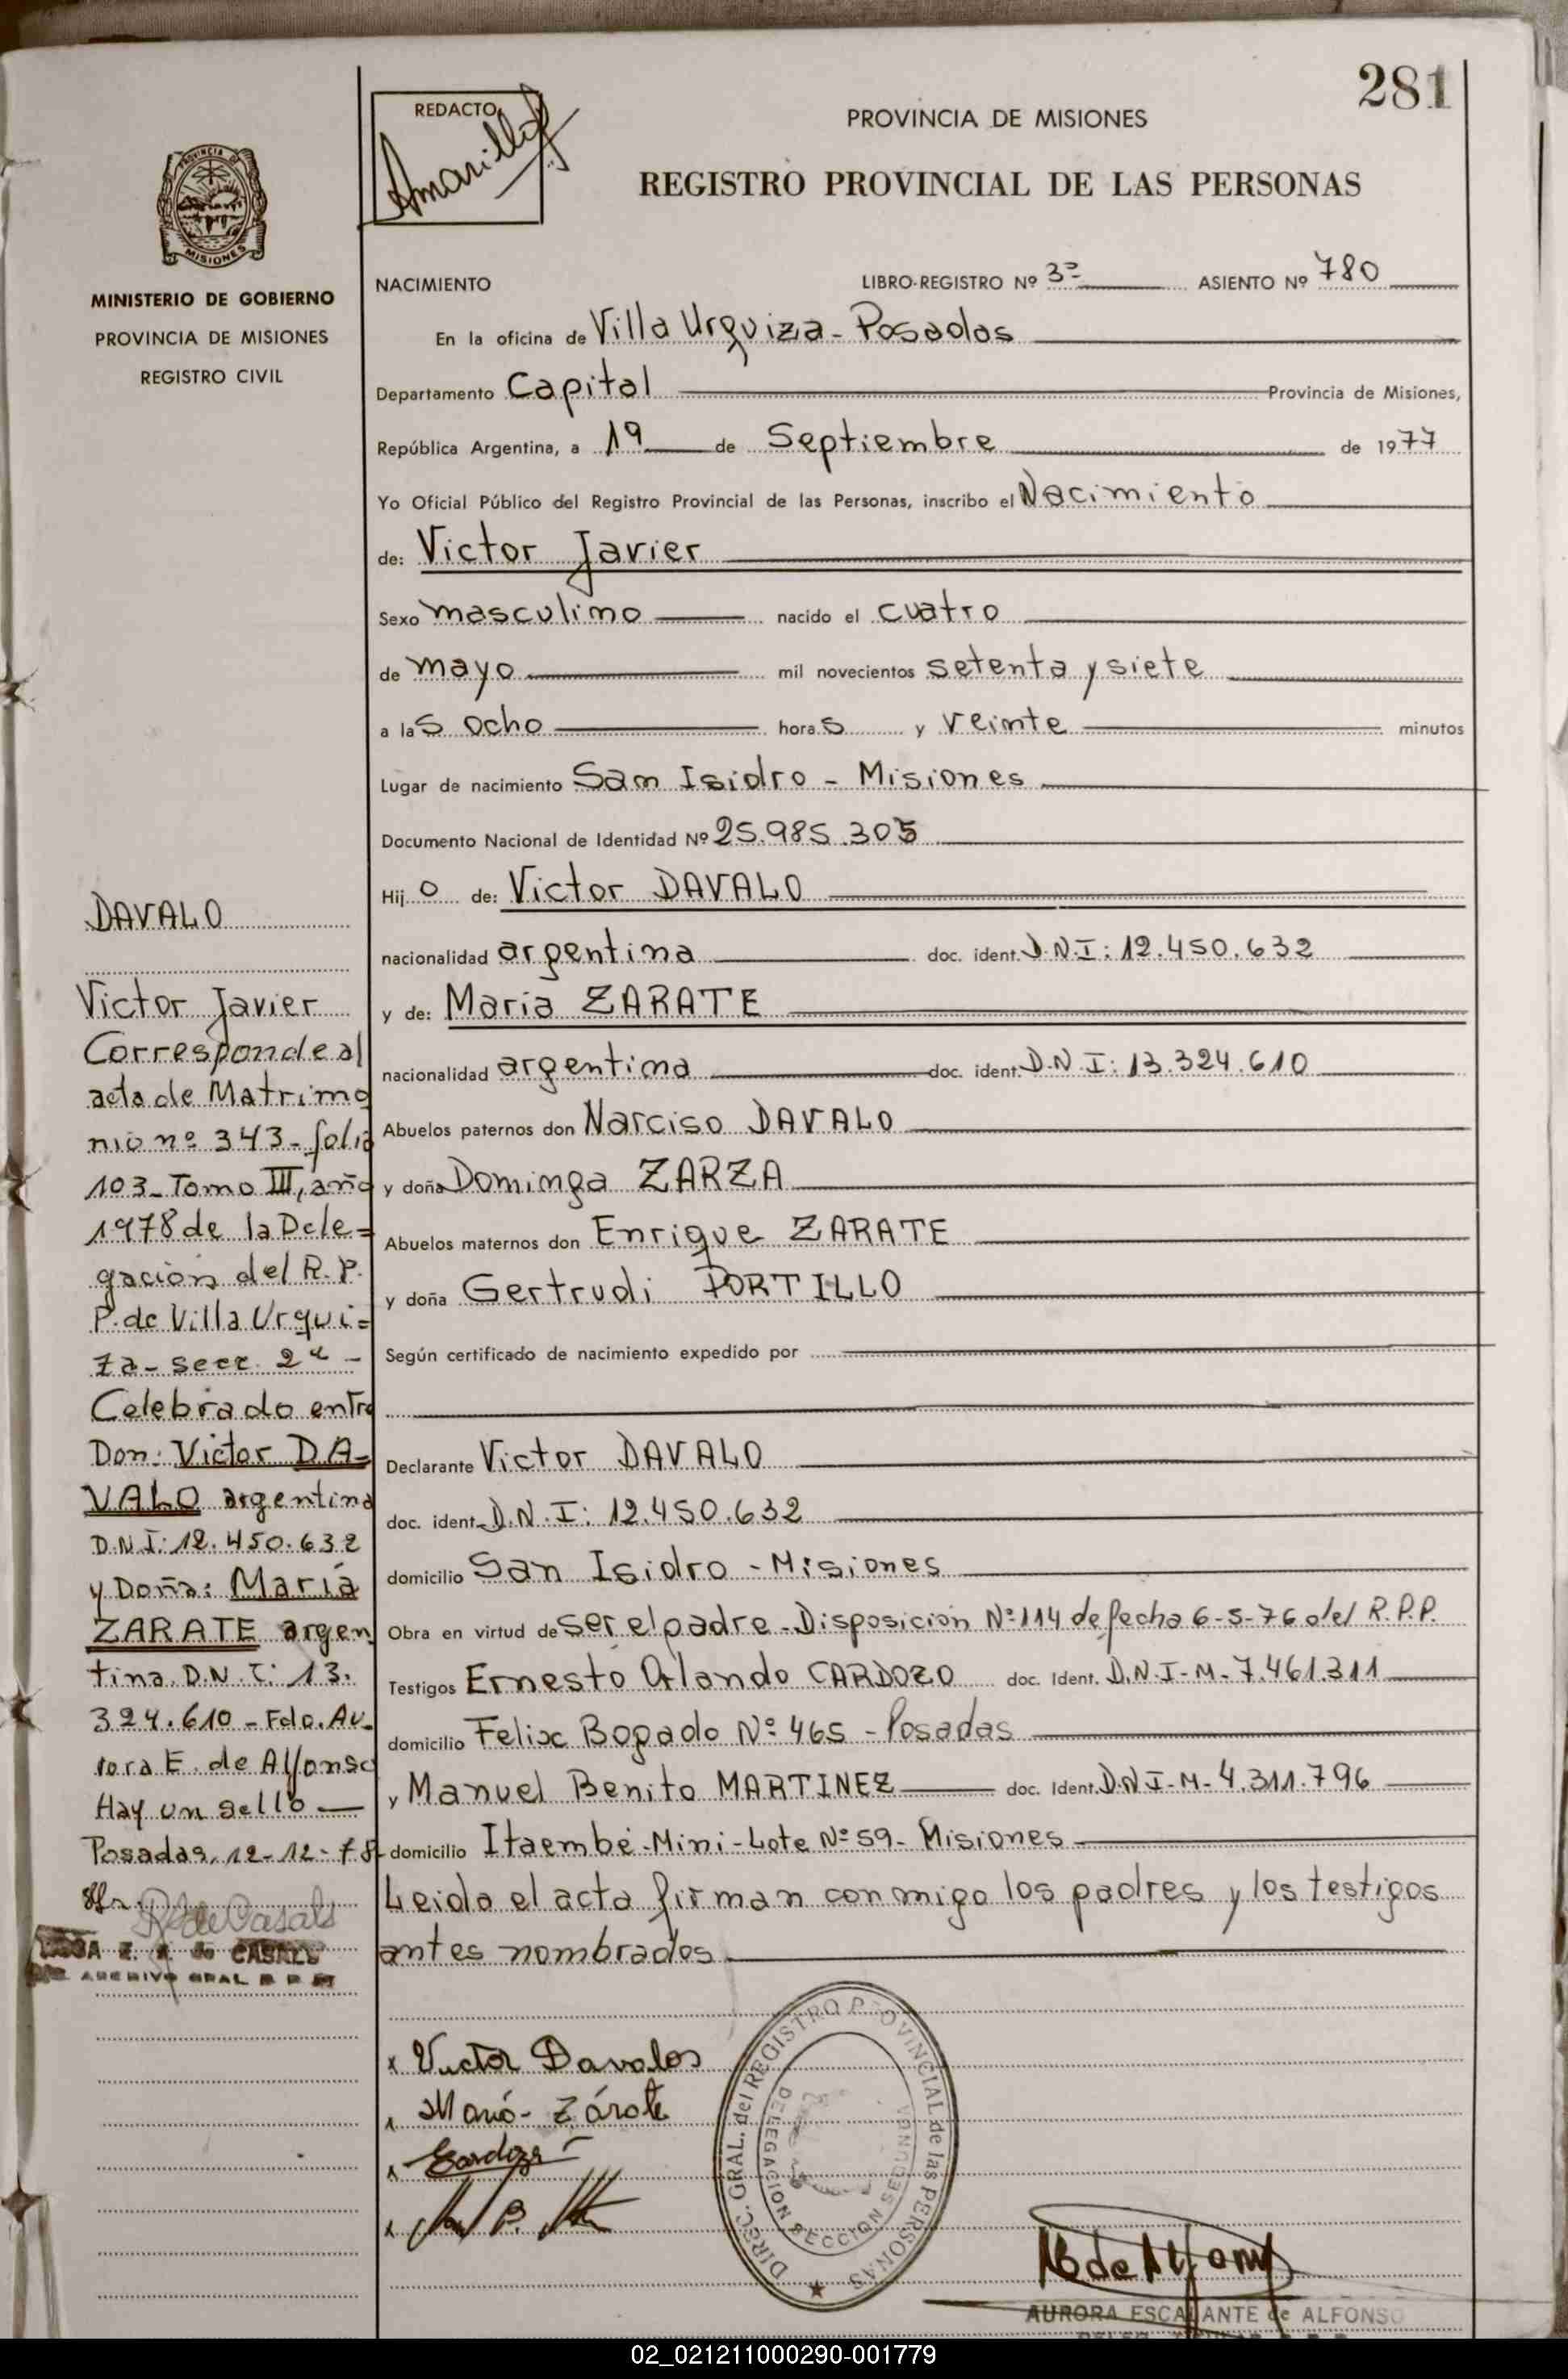 281
REDACTO
Amarilla
PROVINCIA DE MISIONES
REGISTRO PROVINCIAL DE LAS PERSONAS
PROVINCIA DE
MISIONES
MINISTERIO DE GOBIERNO
PROVINCIA DE MISIONES
REGISTRO CIVIL
NACIMIENTO LIBRO-REGISTRO Nº 3º ASIENTO Nº 780
En la oficina de Villa Urquiza - Posadas
Departamento Capital Provincia de Misiones,
República Argentina, a 19 de Septiembre de 1977
Yo Oficial Público del Registro Provincial de las Personas, inscribo el Nacimiento
de: Victor Javier
Sexo masculino nacido el cuatro
de mayo mil novecientos setenta y siete
a las ocho horas y veinte minutos
Lugar de nacimiento San Isidro - Misiones
Documento Nacional de Identidad Nº 25.985.305
Hijo de: Victor DAVALO
nacionalidad argentina doc. ident. D.N.I: 12.450.632
y de: Maria ZARATE
nacionalidad argentina doc. ident. D.N.I: 13.324.610
Abuelos paternos don Narciso DAVALO
y doña Dominga ZARZA
Abuelos maternos don Enrique ZARATE
y doña Gertrudi PORTILLO
Según certificado de nacimiento expedido por
Declarante Victor DAVALO
doc. ident. D.N.I: 12.450.632
domicilio San Isidro - Misiones
Obra en virtud de ser el padre - Disposición Nº 114 de fecha 6-5-76 del R.P.P.
Testigos Ernesto Orlando CARDOZO doc. Ident. D.N.I-M-7.461.311
domicilio Felix Bogado Nº 465 - Posadas
y Manuel Benito MARTINEZ doc. Ident. D.N.I-M-4.311.796
domicilio Itaembé-Mini-Lote Nº 59- Misiones
Leida el acta firman conmigo los padres y los testigos
antes nombrados
DAVALO
Victor Javier
Corresponde al
acta de Matrimo
nio nº 343-folio
103-Tomo III, año
1978 de la Dele=
gación del R.P.
P. de Villa Urqui=
za - secc. 2ª -
Celebrado entre
Don: Victor DA=
VALO argentino
D.N.I: 12.450.632
y Doña: María
ZARATE argen
tina D.N.I: 13.
324.610 - Fdo. Au-
rora E. de Alfonso
Hay un sello
Posadas, 12-12-78
R de Casals
de CASALS
ARCHIVO GRAL R P P
x Victor Davalos
x María Zárate
x Cardozo
x
DIREC. GRAL. del REGISTRO PROVINCIAL de las PERSONAS
DELEGACION SECCION SEGUNDA
AE de Alfonso
AURORA ESCALANTE de ALFONSO
02_021211000290-001779